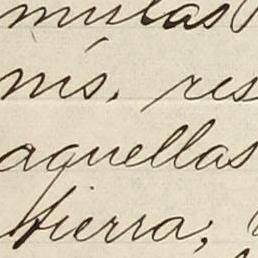 mulas
nís, res
aquellas
tierra,